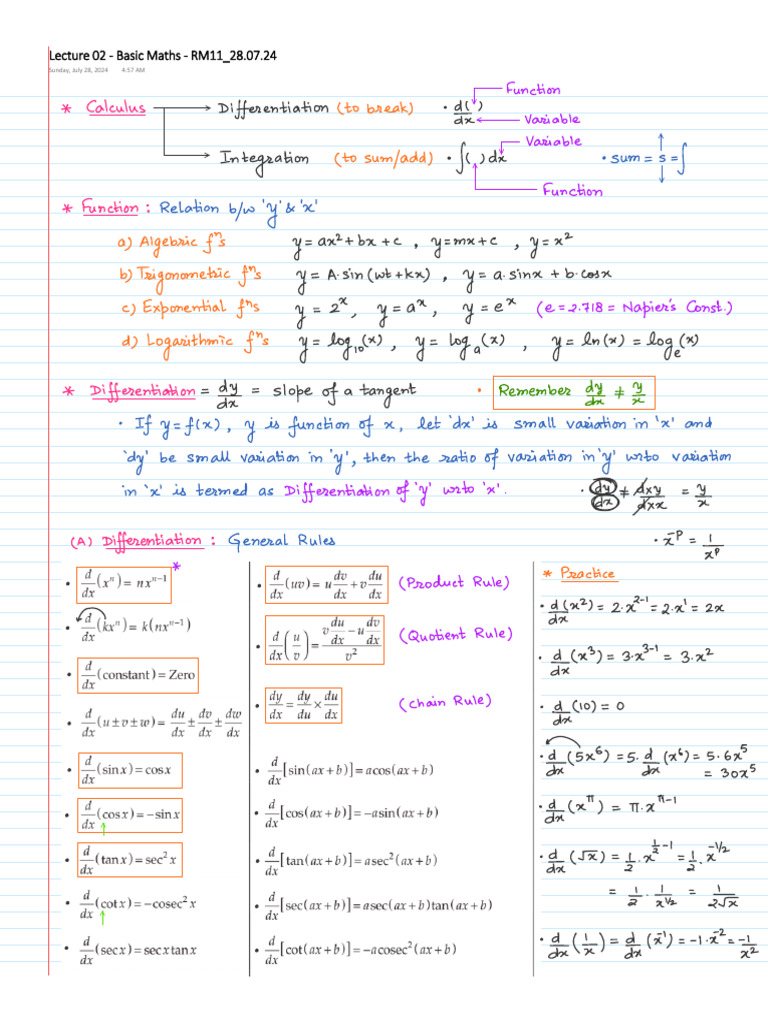 Lecture 02 - Basic Maths - RM11_28.07.24
Sunday, July 28, 2024 4:57 AM
* Calculus → Differentiation (to break) • d( )/dx Function Variable
→ Integration (to sum/add) • ∫( )dx Variable Function • sum = s = ∫
* Function : Relation b/w 'y' & 'x'
a) Algebric fⁿs y = ax² + bx + c , y = mx + c , y = x²
b) Trigonometric fⁿs y = A·sin(wt + kx) , y = a·sinx + b·cosx
c) Exponential fⁿs y = 2ˣ , y = aˣ , y = eˣ (e = 2.718 = Napier's Const.)
d) Logarithmic fⁿs y = log₁₀(x) , y = logₐ(x) , y = ln(x) = logₑ(x)
* Differentiation = dy/dx = slope of a tangent • Remember dy/dx ≠ y/x
• If y = f(x) , y is function of x, let 'dx' is small variation in 'x' and
'dy' be small variation in 'y', then the ratio of variation in 'y' wrto variation
in 'x' is termed as Differentiation of 'y' wrto 'x'. • dy/dx ≠ dxy/dxx = y/x
(A) Differentiation : General Rules • x⁻ᵖ = 1/xᵖ
• d/dx (xⁿ) = nxⁿ⁻¹ *
• d/dx (kxⁿ) = k(nxⁿ⁻¹)
• d/dx (constant) = Zero
• d/dx (u ± v ± w) = du/dx ± dv/dx ± dw/dx
• d/dx (sin x) = cos x
• d/dx (cos x) = −sin x
• d/dx (tan x) = sec² x
• d/dx (cot x) = −cosec² x
• d/dx (sec x) = sec x tan x
• d/dx (uv) = u dv/dx + v du/dx (Product Rule)
• d/dx (u/v) = (v du/dx − u dv/dx)/v² (Quotient Rule)
• dy/dx = dy/du × du/dx (Chain Rule)
• d/dx [sin(ax + b)] = a cos(ax + b)
• d/dx [cos(ax + b)] = −a sin(ax + b)
• d/dx [tan(ax + b)] = a sec²(ax + b)
• d/dx [sec(ax + b)] = a sec(ax + b) tan(ax + b)
• d/dx [cot(ax + b)] = −a cosec²(ax + b)
* Practice
• d/dx (x²) = 2·x²⁻¹ = 2·x¹ = 2x
• d/dx (x³) = 3·x³⁻¹ = 3·x²
• d/dx (10) = 0
• d/dx (5x⁶) = 5· d/dx (x⁶) = 5·6x⁵
= 30x⁵
• d/dx (x^π) = π·x^(π−1)
• d/dx (√x) = 1/2·x^(1/2−1) = 1/2·x^(−1/2)
= 1/2 · 1/x^(1/2) = 1/(2√x)
• d/dx (1/x) = d/dx (x⁻¹) = −1·x⁻² = −1/x²